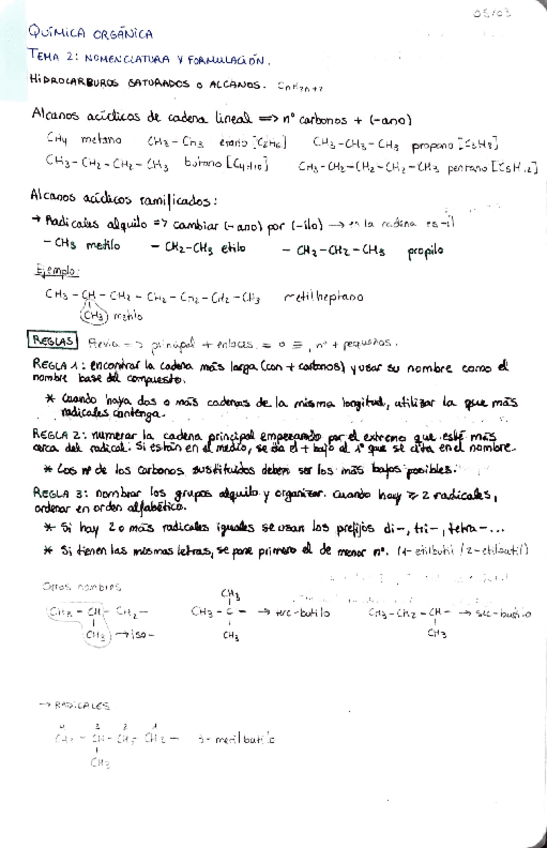 05/03
QUÍMICA ORGÁNICA
TEMA 2: NOMENCLATURA Y FORMULACIÓN.
HIDROCARBUROS SATURADOS O ALCANOS. CnH2n+2
Alcanos acíclicos de cadena lineal => nº carbonos + (-ano)
CH4 metano CH3-CH3 etano [C2H6] CH3-CH2-CH3 propano [C3H8]
CH3-CH2-CH2-CH3 butano [C4H10] CH3-CH2-CH2-CH2-CH3 pentano [C5H12]
Alcanos acíclicos ramificados:
→ Radicales alquilo => cambiar (-ano) por (-ilo) → en la cadena es -il
-CH3 metilo -CH2-CH3 etilo -CH2-CH2-CH3 propilo
Ejemplo:
CH3-CH-CH2-CH2-CH2-CH2-CH3 metilheptano
CH3 metilo
REGLAS Previa -> principal + enlaces = o ≡, nº + pequeños.
REGLA 1: encontrar la cadena más larga (con + carbonos) y usar su nombre como el
nombre base del compuesto.
* Cuando haya dos o más cadenas de la misma longitud, utilizar la que más
radicales contenga.
REGLA 2: numerar la cadena principal empezando por el extremo que esté más
cerca del radical. Si están en el medio, se da el + bajo al 1º que se cita en el nombre.
* Los nº de los carbonos sustituidos deben ser los más bajos posibles.
REGLA 3: nombrar los grupos alquilo y organizar. Cuando hay ≥ 2 radicales,
ordenar en orden alfabético.
* Si hay 2 o más radicales iguales se usan los prefijos di-, tri-, tetra-...
* Si tienen las mismas letras, se pone primero el de menor nº. (1-etilbutil / 2-etilbutil)
Otros nombres
CH3
CH3-CH-CH2- CH3-C- → terc-butilo CH3-CH2-CH- → sec-butilo
CH3 → iso- CH3 CH3
→ RADICALES
4 3 2 1
CH3-CH-CH2-CH2- 3-metilbutilo
CH3